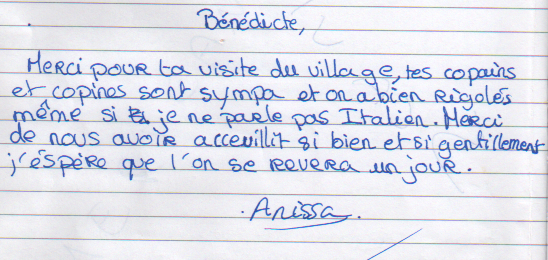 Bénédicte,
Merci pour ta visite du village, tes copains
et copines sont sympa et on a bien rigolés
même si je ne parle pas Italien. Merci
de nous avoir acceuillit si bien et si gentillement
j'éspère que l'on se revera un jour.
. Anissa.